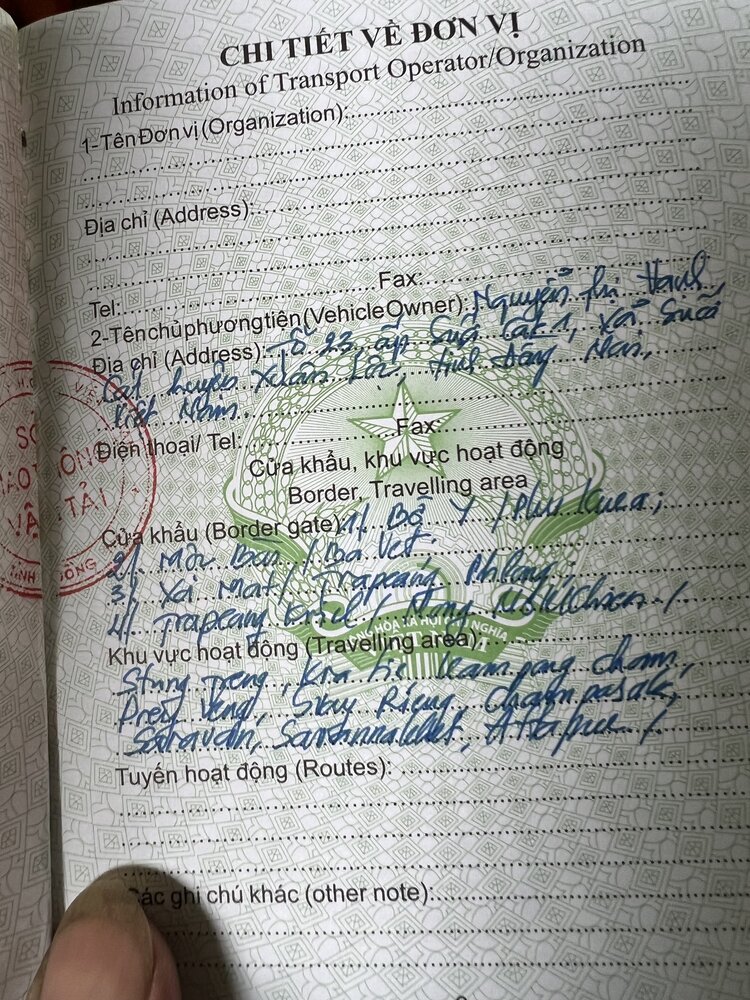 CHI TIẾT VỀ ĐƠN VỊ
Information of Transport Operator/Organization
1-Tên Đơn vị (Organization):
Địa chỉ (Address):
Tel: Fax:
2-Tên chủ phương tiện (Vehicle Owner): Nguyễn Thị Hạnh
Địa chỉ (Address): Tổ 23 ấp Suối Cát 1, Xã Suối
Cát huyện Xuân Lộc, tỉnh Đồng Nai,
Việt Nam.
Điện thoại/ Tel: Fax:
Cửa khẩu, khu vực hoạt động
Border, Travelling area
Cửa khẩu (Border gate): 1/. Bờ Y / Phu Kuea;
2/. Mộc Bài / Ba Vet;
3/. Xa Mat / Trapeang Phlong;
4/. Trapeang Kriel / Nong Nokkhien /
Khu vực hoạt động (Travelling area):
Stung Treng, Kra Tie Kampong Cham,
Prey Veng, Svay Rieng Champasak,
Saravan, Savannakhet, Attapue /
Tuyến hoạt động (Routes):
Các ghi chú khác (other note):
SỞ
GIAO THÔNG
VẬN TẢI